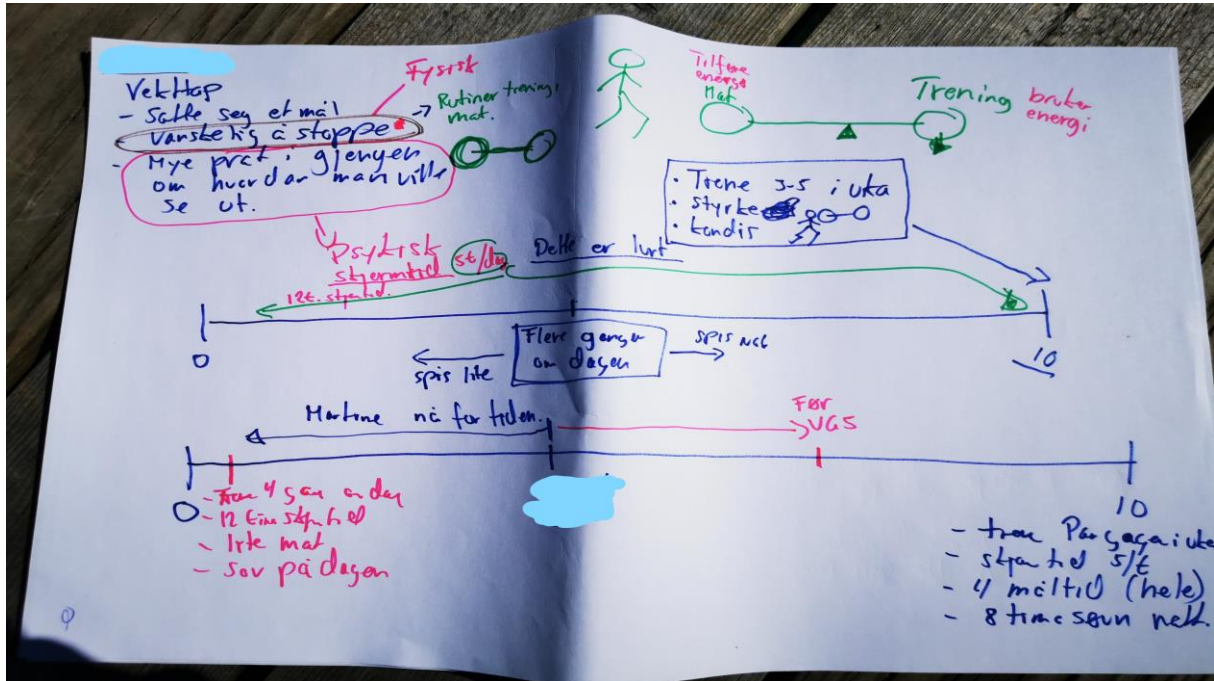 Vekttap
- Satte seg et mål
- Vanskelig å stoppe
- Mye prat i gjengen
om hvordan man ville
se ut.
Fysisk
→ Rutiner trening,
mat.
Tilføre
energi
Mat
Trening bruker
energi
• Trene 3-5 i uka
• styrke
• kondis
Psykisk
skjermtid 5t/dag
Dette er lurt
12t. skjermtid.
0
10
Flere ganger
om dagen
spis lite
spis nok
Martine nå for tiden.
Før
VGS
0
10
- Tren 4 gan om dag
- 12 time skjermtid
- lite mat
- Sov på dagen
- tren Par gager i uka
- skjermtid 5/t
- 4 måltid (hele)
- 8 time søvn natt.